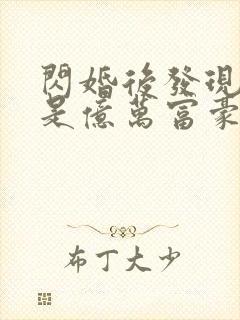 閃婚後發現
是億萬富豪
布丁大少